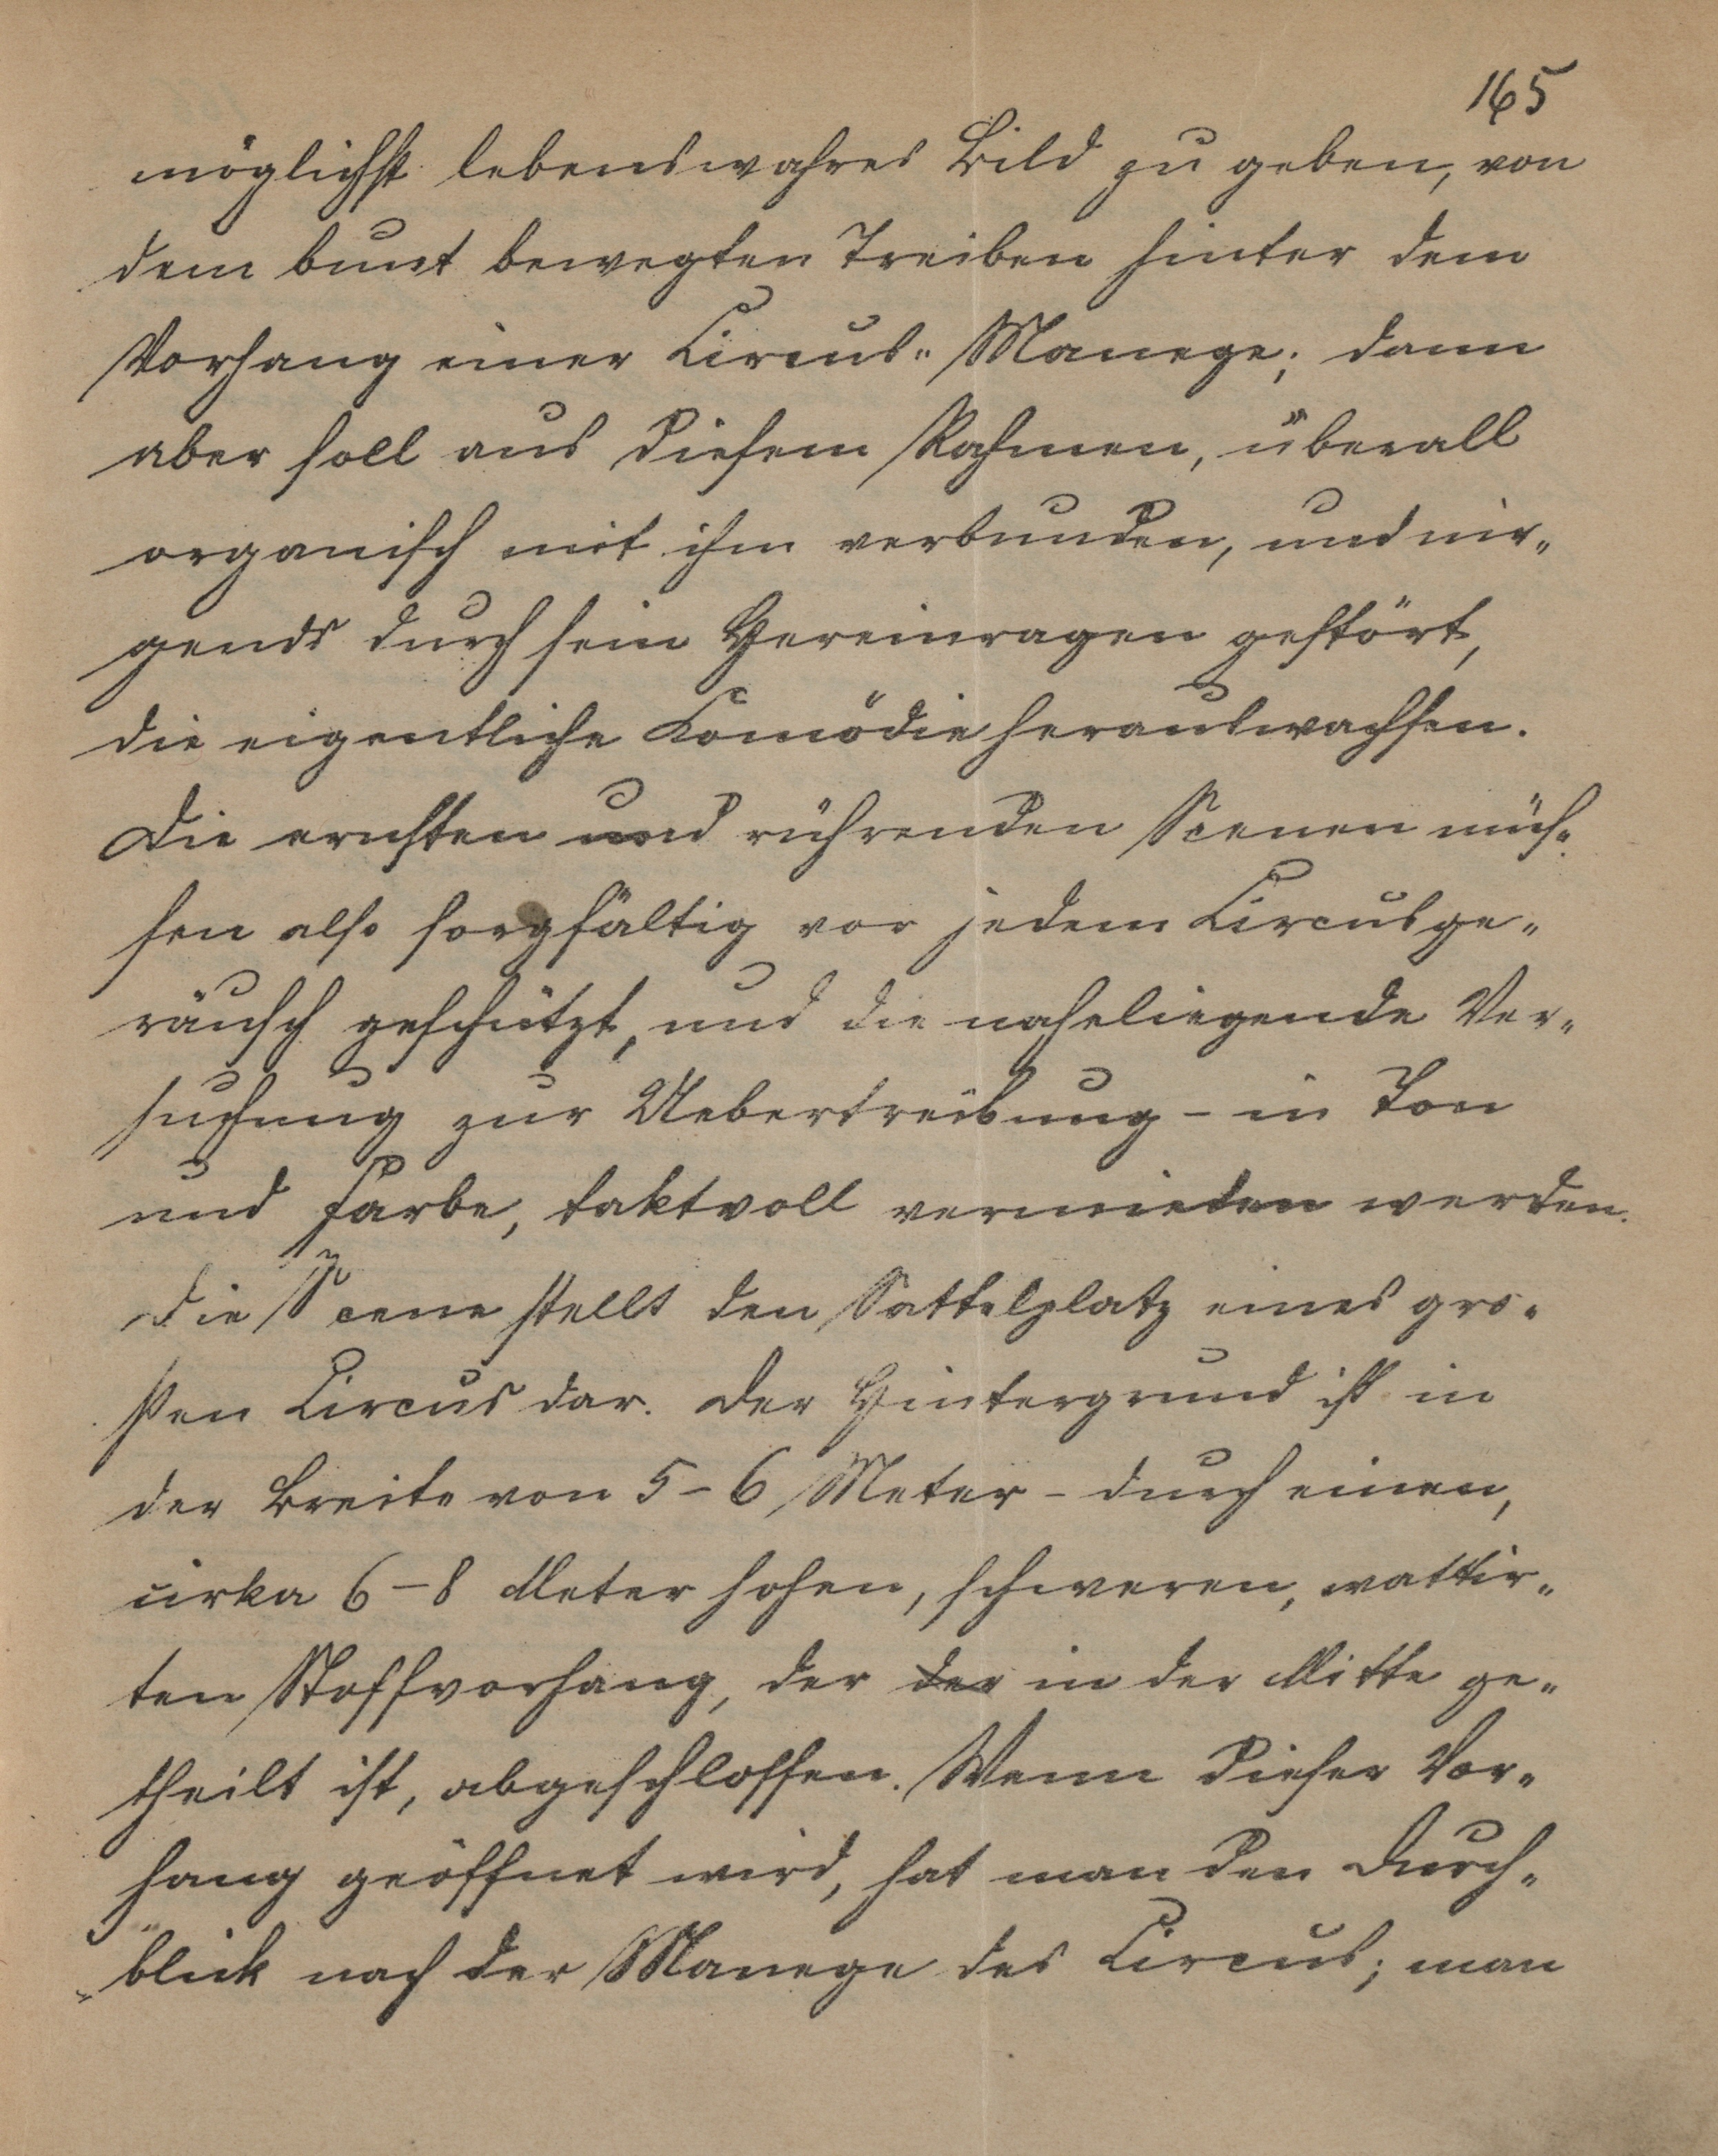 165
möglichst lebenswahres Bild zu geben, von
dem bunt bewegten Treiben hinter dem
Vorhang einer Circus-Manege; dann
aber soll aus diesem Rahmen, überall
organisch mit ihm verbunden, und nir-
gends durch sein Hereinragen gestört,
die eigentliche Komödie herauswachsen.
Die ernsten und rührenden Scenen müs-
sen also sorgfältig vor jedem Circusge-
räusch geschützt, und die naheliegende Ver-
suchung zur Uebertreibung - in Ton
und Farbe, taktvoll vermieden werden.
Die Scene stellt den Sattelplatz eines gro-
ßen Circus dar. Der Hintergrund ist in
der Breite von 5-6 Meter - durch einen,
cirka 6-8 Meter hohen, schweren, wattir-
ten Stoffvorhang, der der in der Mitte ge-
theilt ist, abgeschlossen. Wenn dieser Vor-
hang geöffnet wird, hat man den Durch-
blick nach der Manege des Circus; man